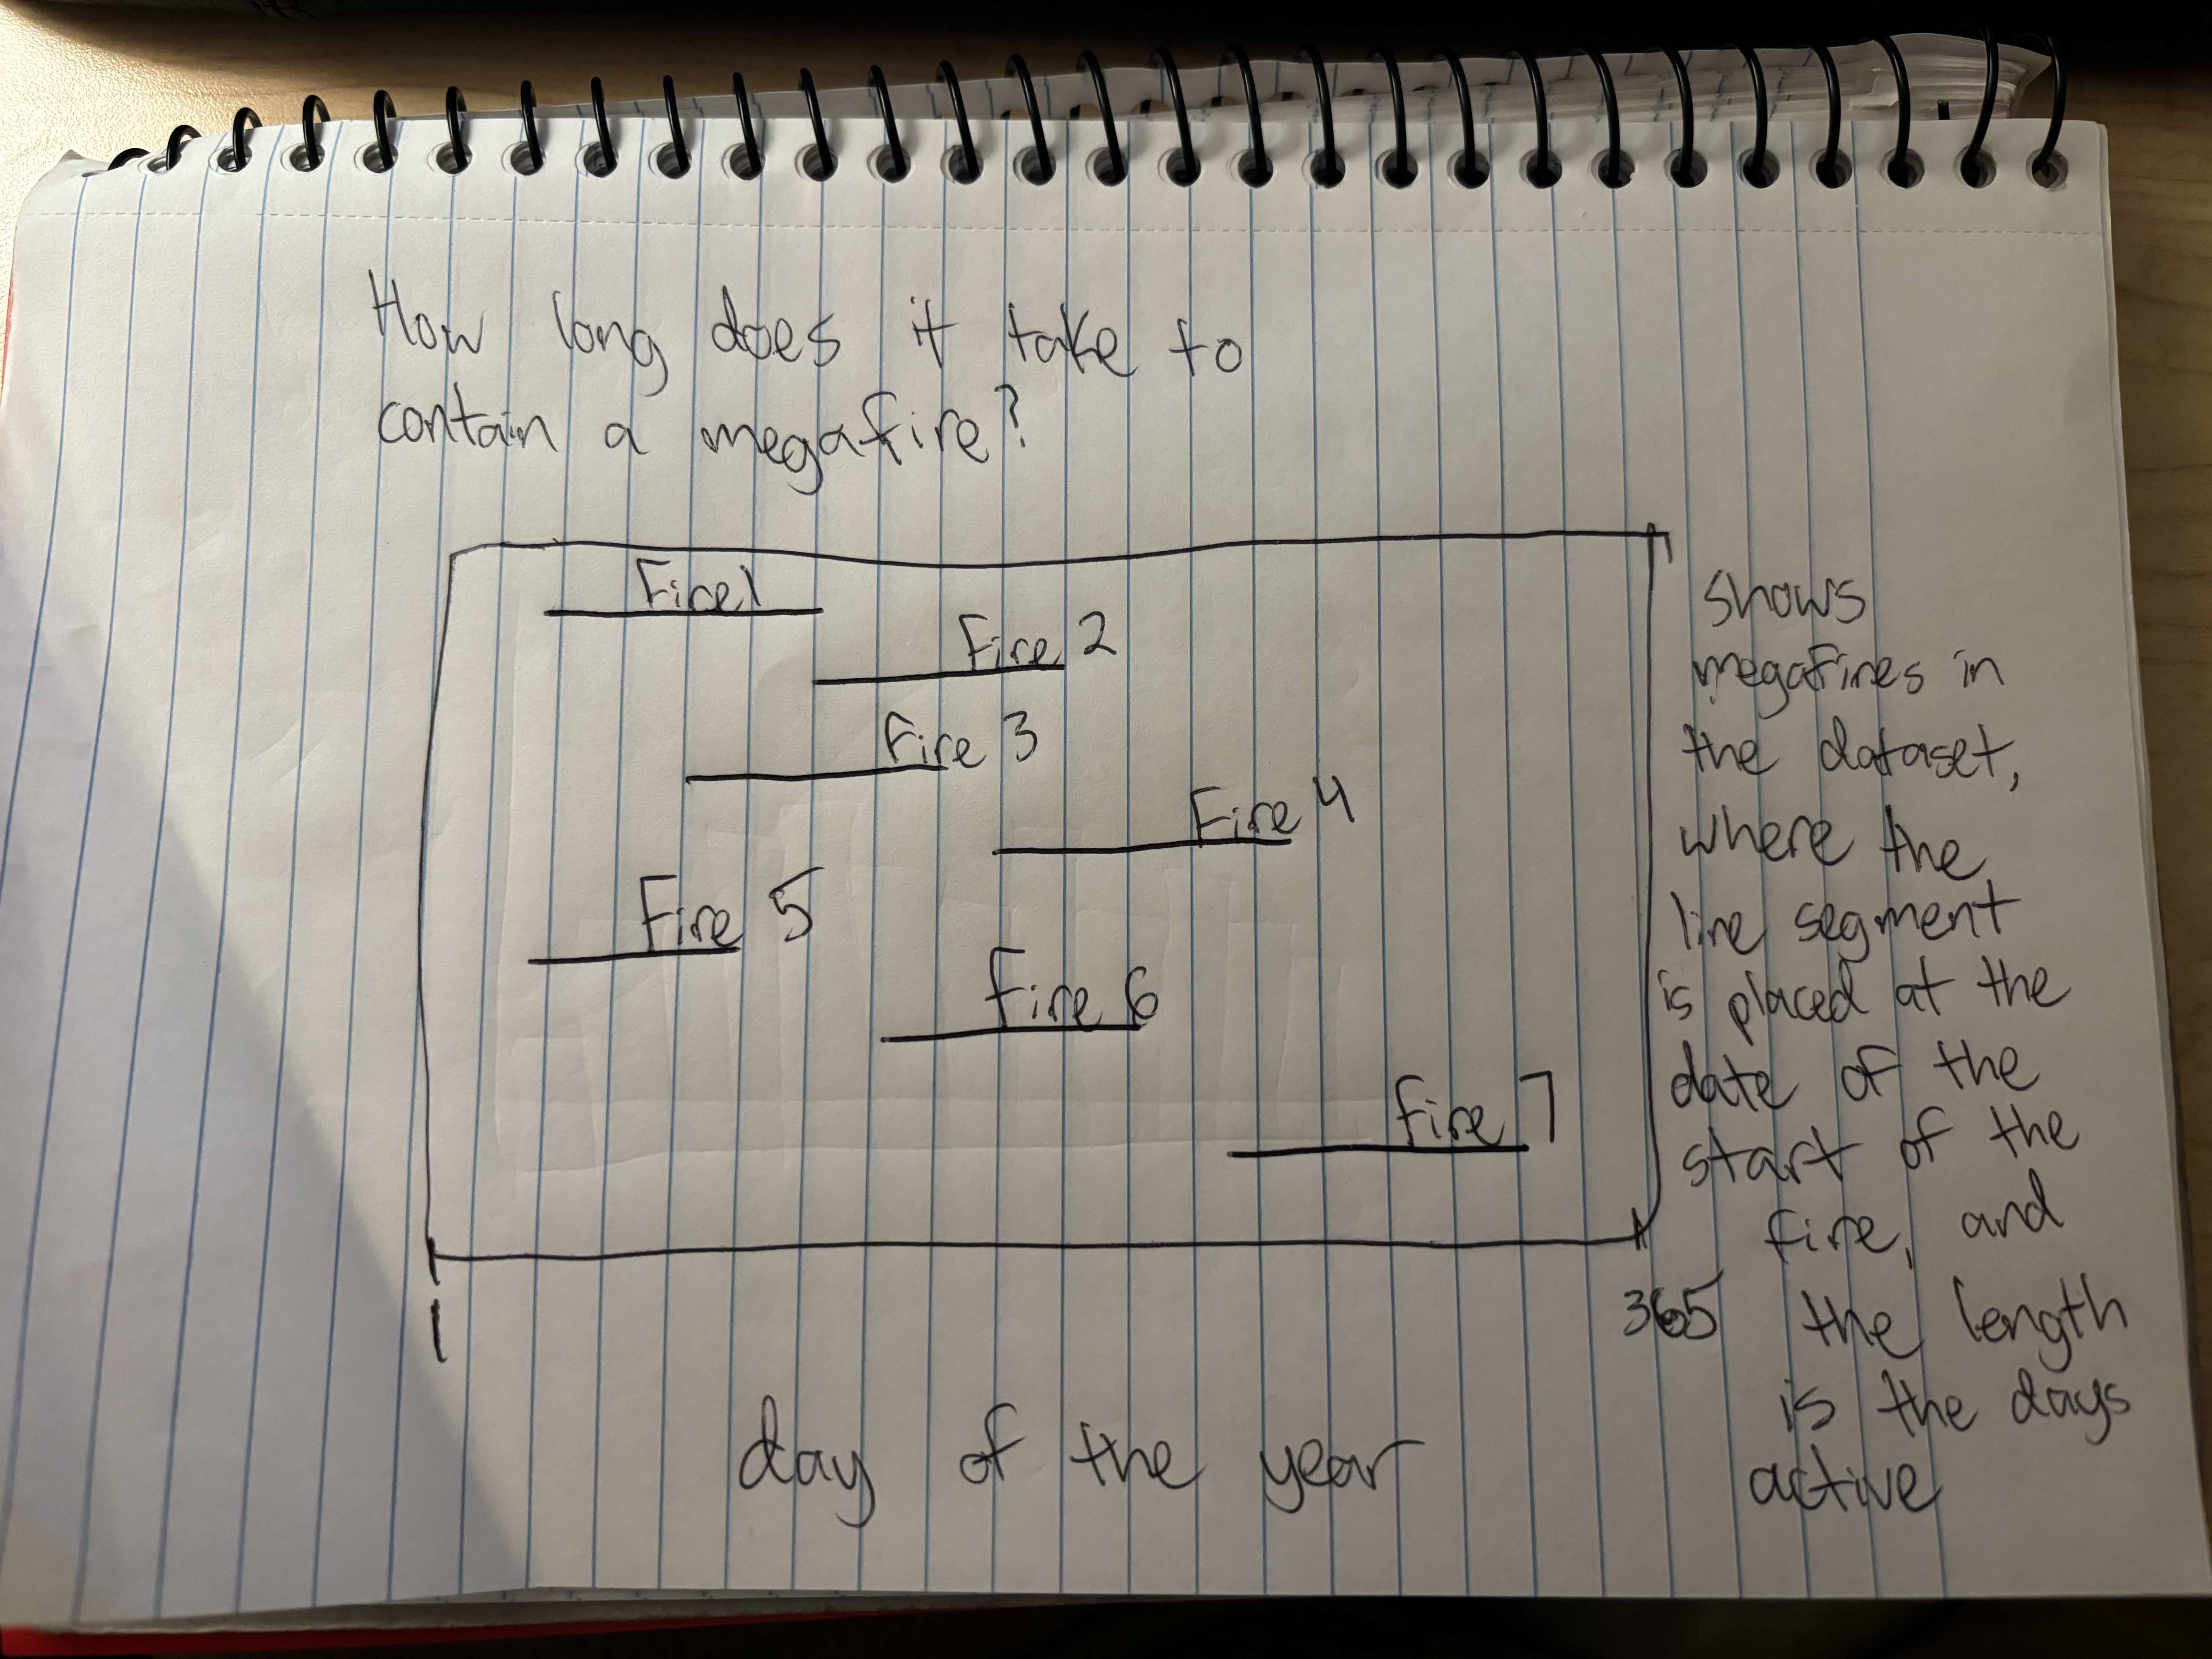 How long does it take to
contain a megafire?
Fire 1
Fire 2
Fire 3
Fire 4
Fire 5
Fire 6
Fire 7
1
365
day of the year
shows
megafires in
the dataset,
where the
line segment
is placed at the
date of the
start of the
fire, and
the length
is the days
active